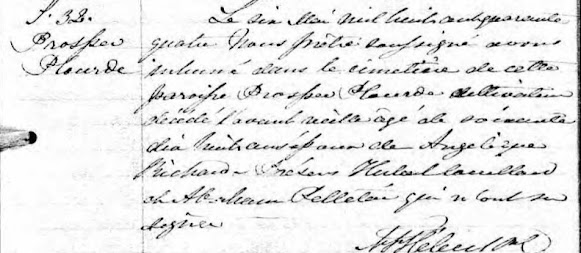 S. 32.
Prosper
Plourde
Le six Mai mil huit cent quarante
quatre Nous prêtre soussigné avons
inhumé dans le cimetière de cette
paroisse Prosper Plourde cultivateur
décédé l'avant veille âgé de soixante
dix huit ans époux de Angelique
Richard. Présens Hubert
et Abraham Pelletier qui n'ont su
signer